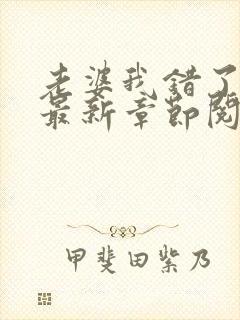 老婆我错了
最新章节阅
甲斐田紫乃